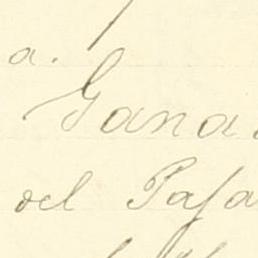 a.
Gana
del Pasa